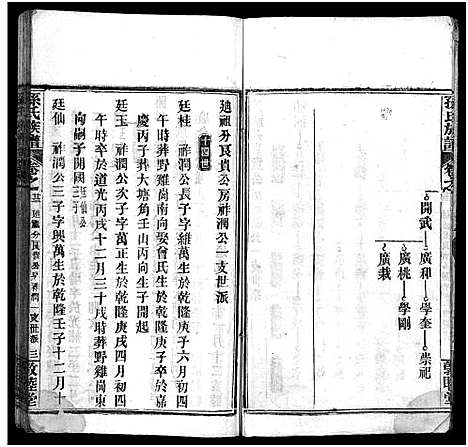 孫氏族譜
開武
廣和
學奎
崇祀
廣桃
學剛
廣栽
敦睦堂
廸祖分良貴公房祚潤公一支世派
十四世
廷桂 祚潤公長子字維萬生於乾隆庚子六月初四
午時葬野雞崗南向娶曾氏生於乾隆庚子卒於嘉
慶丙子葬大塘角壬山丙向生子開起
廷玉 祚潤公次子字萬正生於乾隆庚戌四月初四
午時卒於道光丙戌十二月三十戌時葬野雞崗東
向嗣子開國
廷仙 祚潤公三子字興萬生於乾隆壬子十二月十
孫氏族譜
廸祖分良貴公房祚潤公一支世派
三
敦睦堂